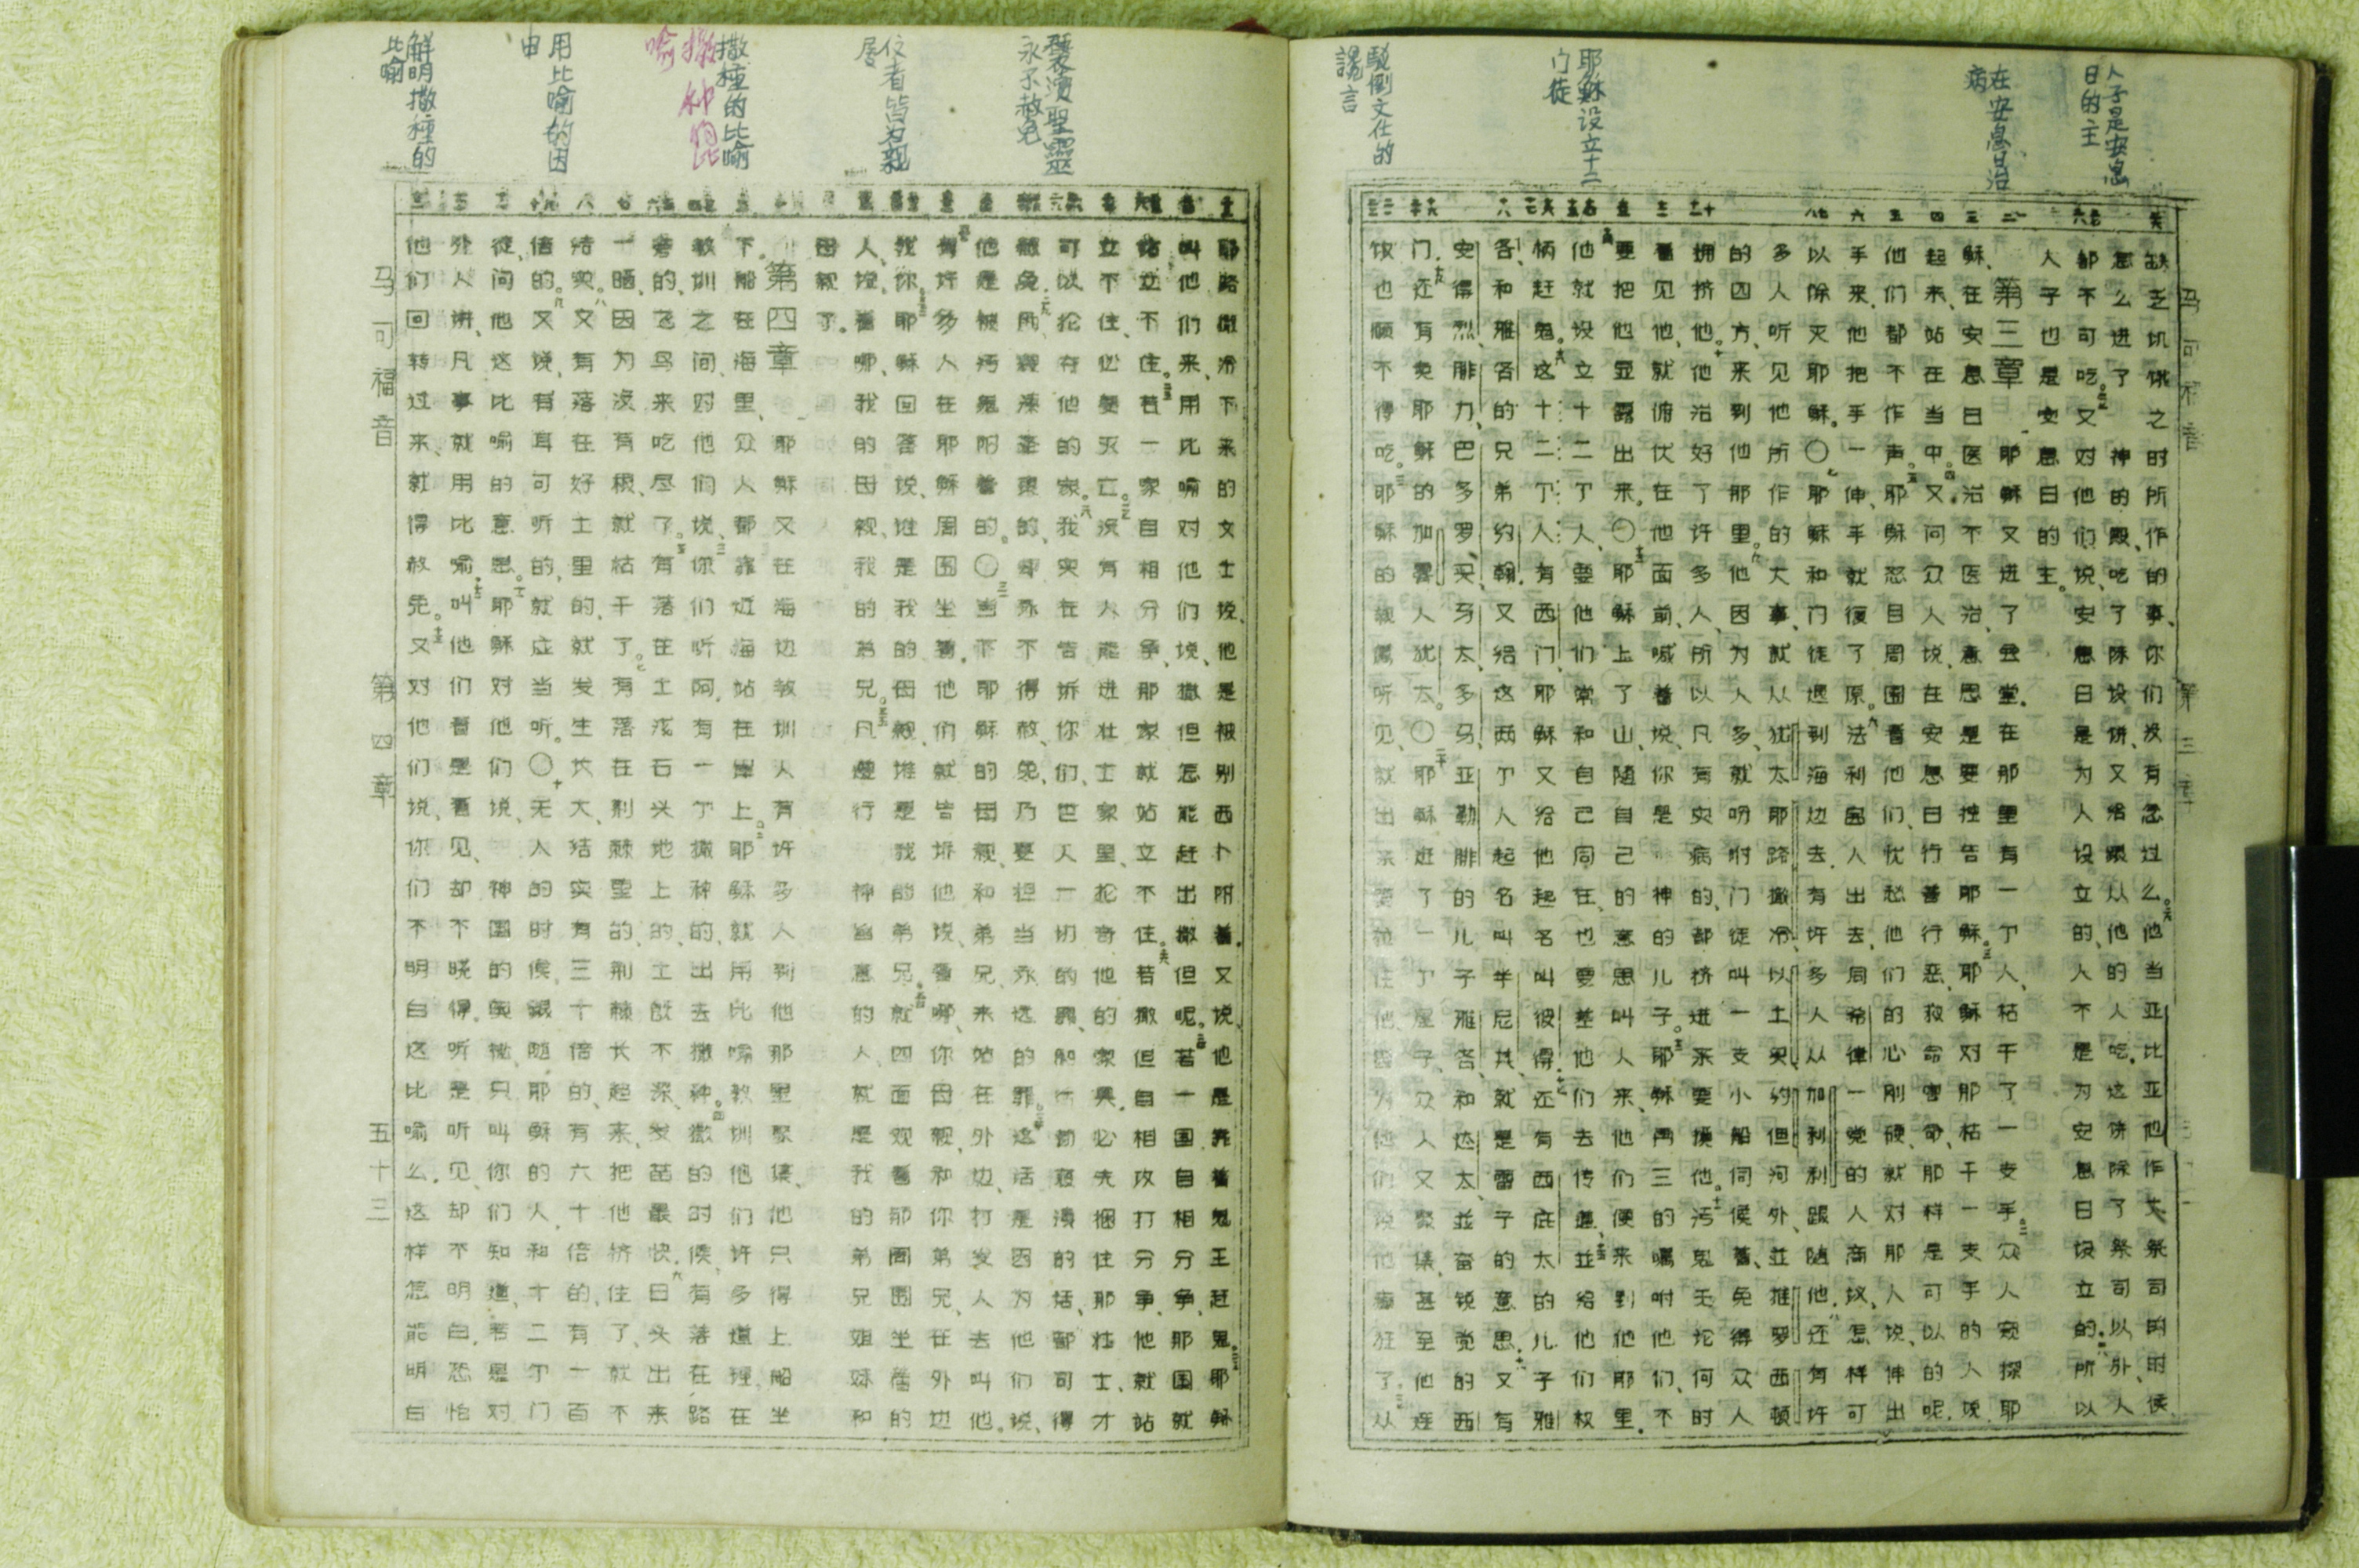 人子是安息
日的主
在安息日治
病
耶稣设立十二
门徒
駁倒文仕的
謊言
缺乏饥饿之时所作的事、你们没有念过么。他当亚比亚他作大祭司的时候
怎么进了神的殿、吃了陈设饼、又给跟从他的人吃.这饼除了祭司以外、人
都不可吃。又对他们说、安息日是为人设立的、人不是为安息日设立的。所以
人子也是安息日的主。
第三章 耶稣又进了会堂.在那里有一个人、枯干了一支手。众人窥探耶
稣、在安息日医治不医治、意思是要控告耶稣。耶稣对那枯干一支手的人说、
起来、站在当中。又问众人说、在安息日行善行恶、救命害命、那样是可以的呢.
他们都不作声。耶稣怒目周围看他们、忧愁他们的心刚硬、就对那人说、伸出
手来、他把手一伸、手就复了原。法利赛人出去、同希律一党的人商议、怎样可
以除灭耶稣。○耶稣和门徒退到海边去.有许多人从加利利跟随他.还有许
多人听见他所作的大事、就从犹太耶路撒冷、以土买、约但河外、並推罗西顿
的四方、来到他那里。他因为人多、就吩咐门徒叫一支小船伺候着、免得众人
拥挤他。他治好了许多人、所以凡有灾病的、都挤进来要摸他。污鬼无论何时
看见他、就俯伏在他面前、喊着说、你是神的儿子。耶稣再三的嘱咐他们、不
要把他显露出来。○耶稣上了山、随自己的意思叫人来、他们便来到他那里.
他就设立十二个人、要他们常和自己同在、也要差他们去传道、並给他们权
柄赶鬼。这十二个人有西门、耶稣又给他起名叫彼得、还有西庇太的儿子雅
各、和雅各的兄弟约翰.又给这两个人起名叫半尼其、就是雷子的意思.又有
安得烈、腓力、巴多罗买、马太、多马、亚勒腓的儿子雅各、和达太、並奋锐党的西
门.还有卖耶稣的加略人犹太。○耶稣进了一个屋子、众人又聚集、甚至他连
饭也顾不得吃。耶稣的亲属听见、就出来要拉住他、因为他们说他癫狂了。从
马可福音 第三章
褻瀆聖靈
永不赦免
撒種的比喻
撒种的比
喻
用比喻的因
由
解明撒種的
比喻
耶路撒冷下来的文士说、他是被别西卜附着.又说他是靠着鬼王赶鬼。耶稣就
叫他们来、用比喻对他们说、撒但怎能赶出撒但呢。若一国自相分争、那国就
站立不住。若一家自相分争、那家就站立不住。若撒但自相攻打分争、他就站
立不住、必要灭亡。没有人能进壮士家里、抢夺他的家具.必先捆住那壮士、才
可以抢夺他的家。我实在告诉你们、世人一切的罪和一切亵渎的话、都可得
赦免.凡亵渎圣灵的、却永不得赦免、乃要担当永远的罪。这话是因为他们说、
他是被污鬼附着的。○当下耶稣的母亲和弟兄来站在外边、打发人去叫他。
有许多人在耶稣周围坐着.他们就告诉他说、看哪、你母亲和你弟兄、在外边
找你。耶稣回答说、谁是我的母亲、谁是我的弟兄。就四面观看那周围坐着的
人、说、看哪、我的母亲、我的弟兄。凡遵行神旨意的人、就是我的弟兄姐妹和
母亲了。
第四章 耶稣又在海边教训人、有许多人到他那里聚集、他只得上船坐
下.船在海里、众人都靠近海站在岸上。耶稣就用比喻教训他们许多道理.在
教训之间、对他们说、你们听阿、有一个撒种的、出去撒种。撒的时候、有落在路
旁的、飞鸟来吃尽了。有落在土浅石头地上的.土既不深、发苗最快.日头出来
一晒、因为没有根、就枯干了。有落在荆棘里的.荆棘长起来、把他挤住了、就不
结实。又有落在好土里的、就发生长大、结实有三十倍的、有六十倍的、有一百
倍的。又说、有耳可听的、就应当听。○无人的时候、跟随耶稣的人、和十二个门
徒、问他这比喻的意思。耶稣对他们说、神国的奥秘、只叫你们知道、若是对
外人讲、凡事就用比喻.叫他们看是看见、却不晓得.听是听见、却不明白.恐怕
他们回转过来、就得赦免。又对他们说、你们不明白这比喻么.这样怎能明白
马可福音 第四章 五十三